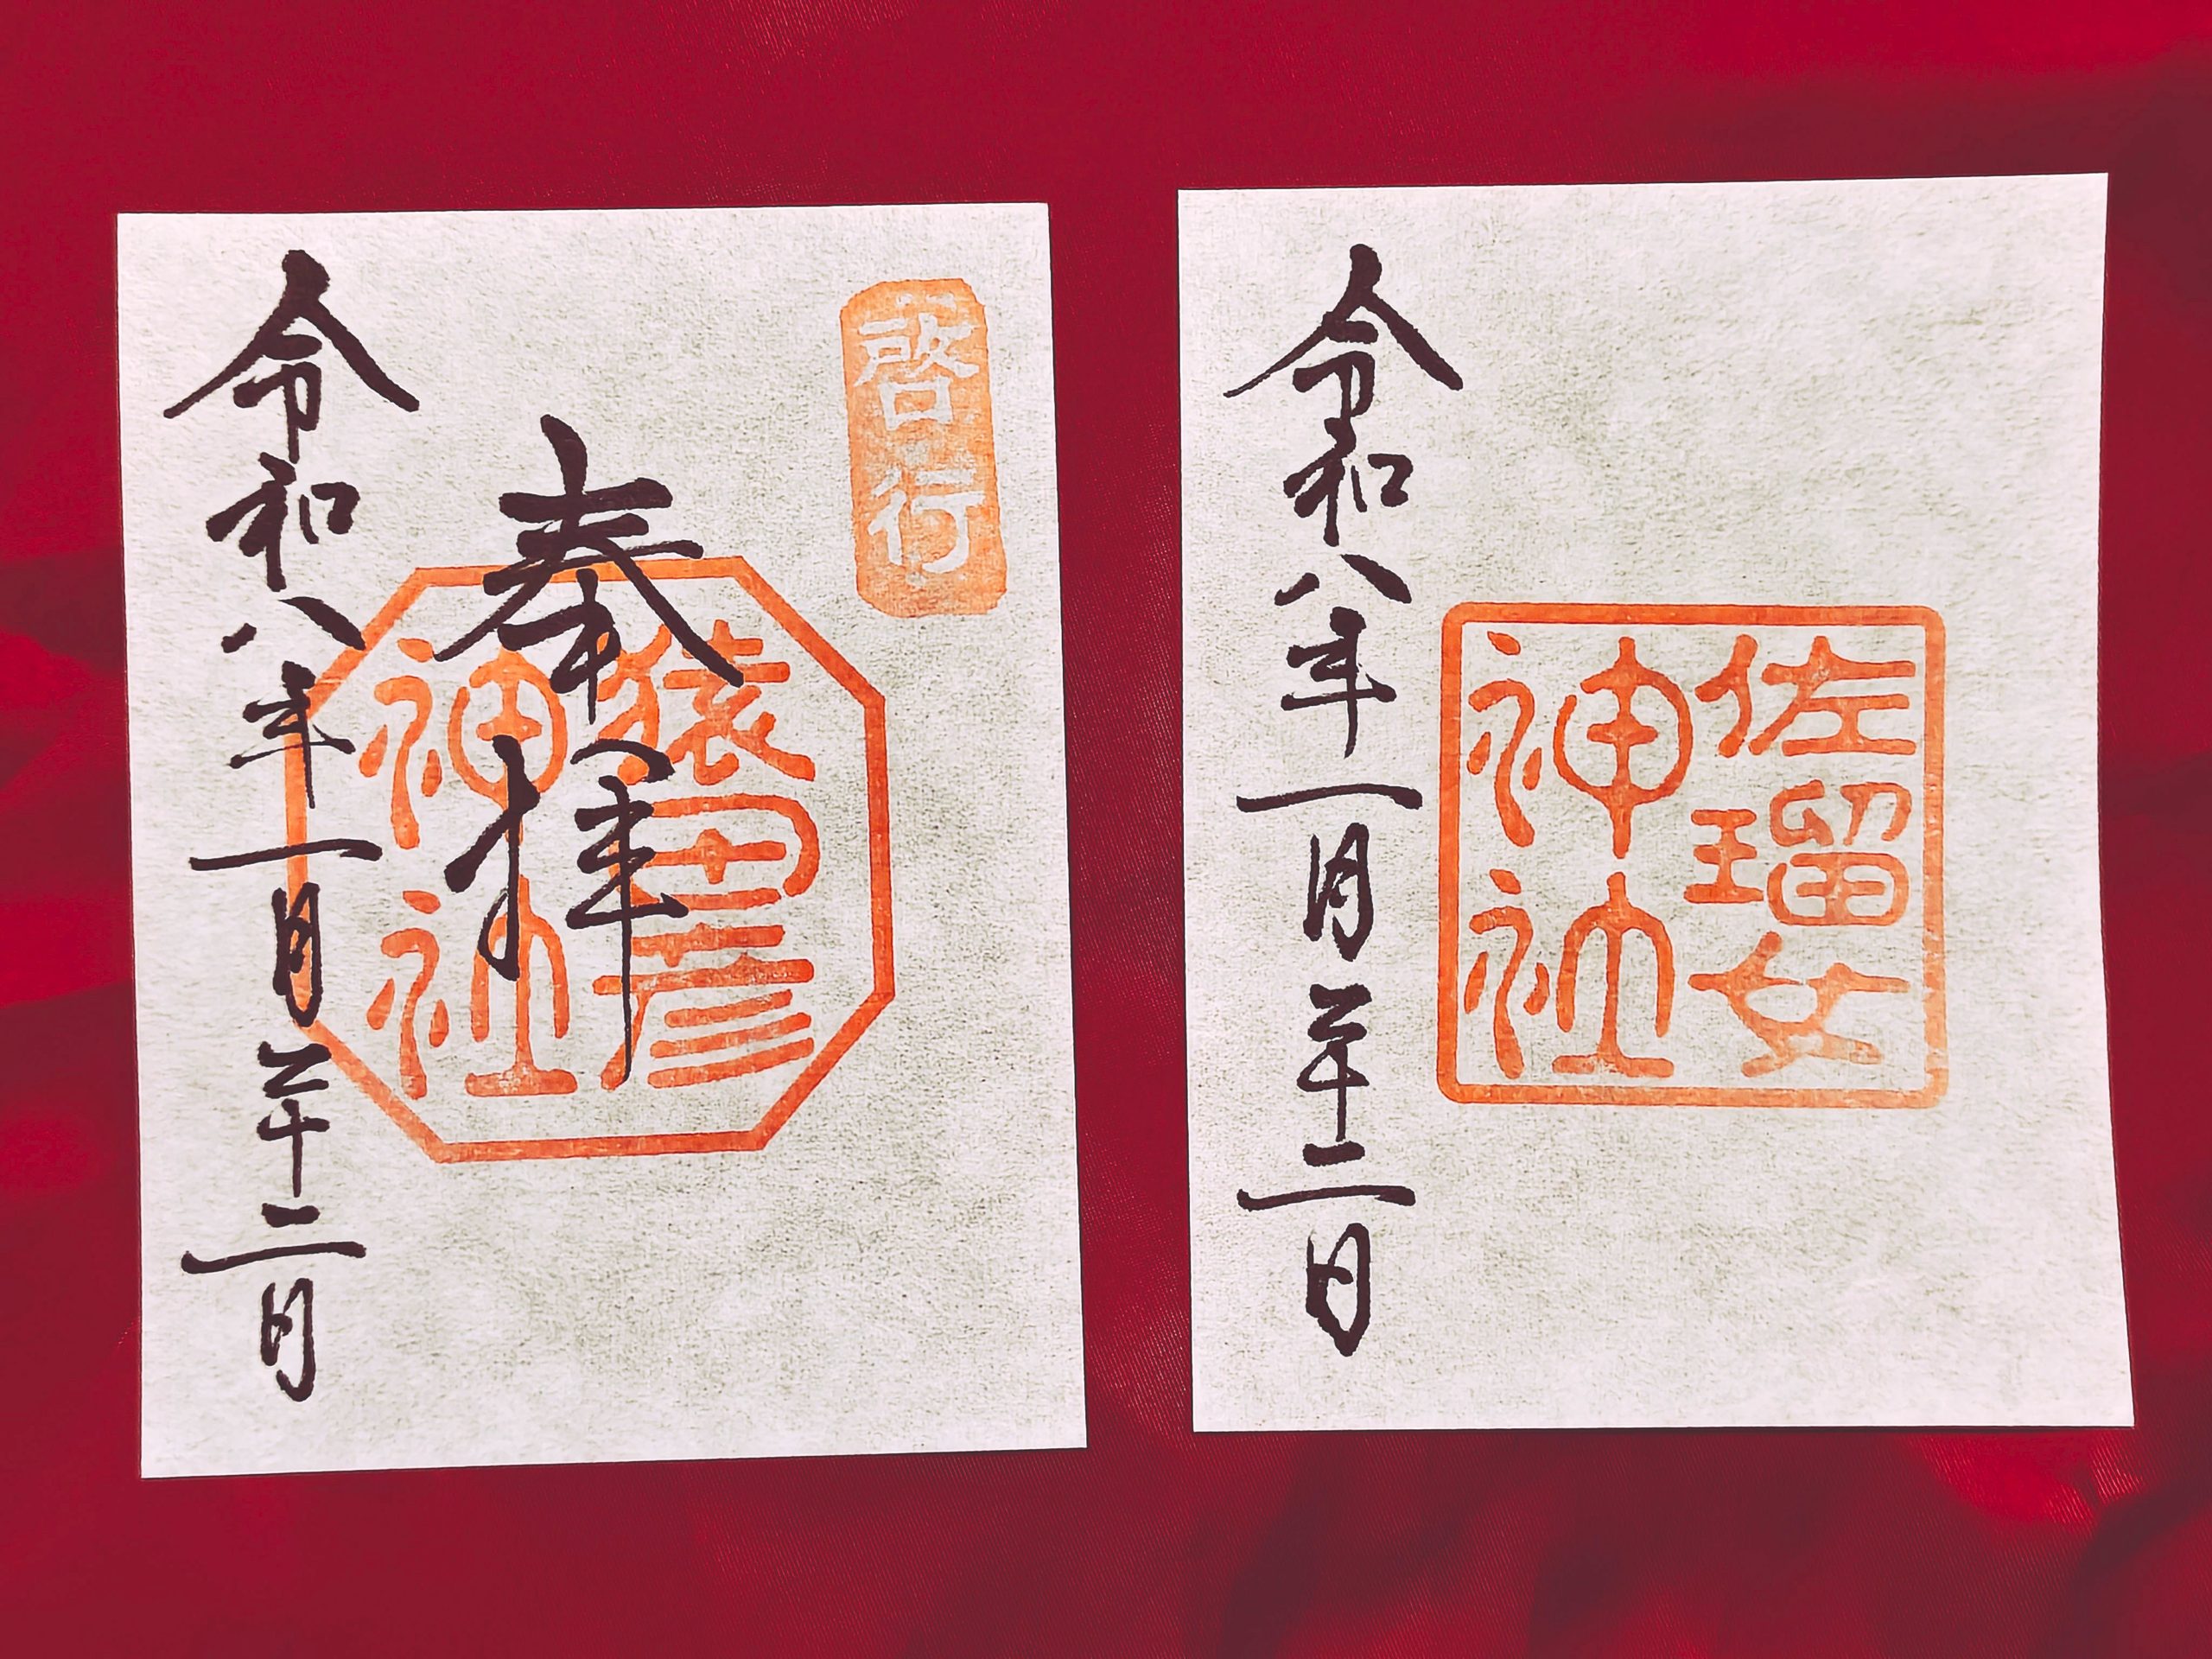 啓行
奉拝
猿田彦
神社
令和八年一月二十二日
佐瑠女
神社
令和八年一月二十二日